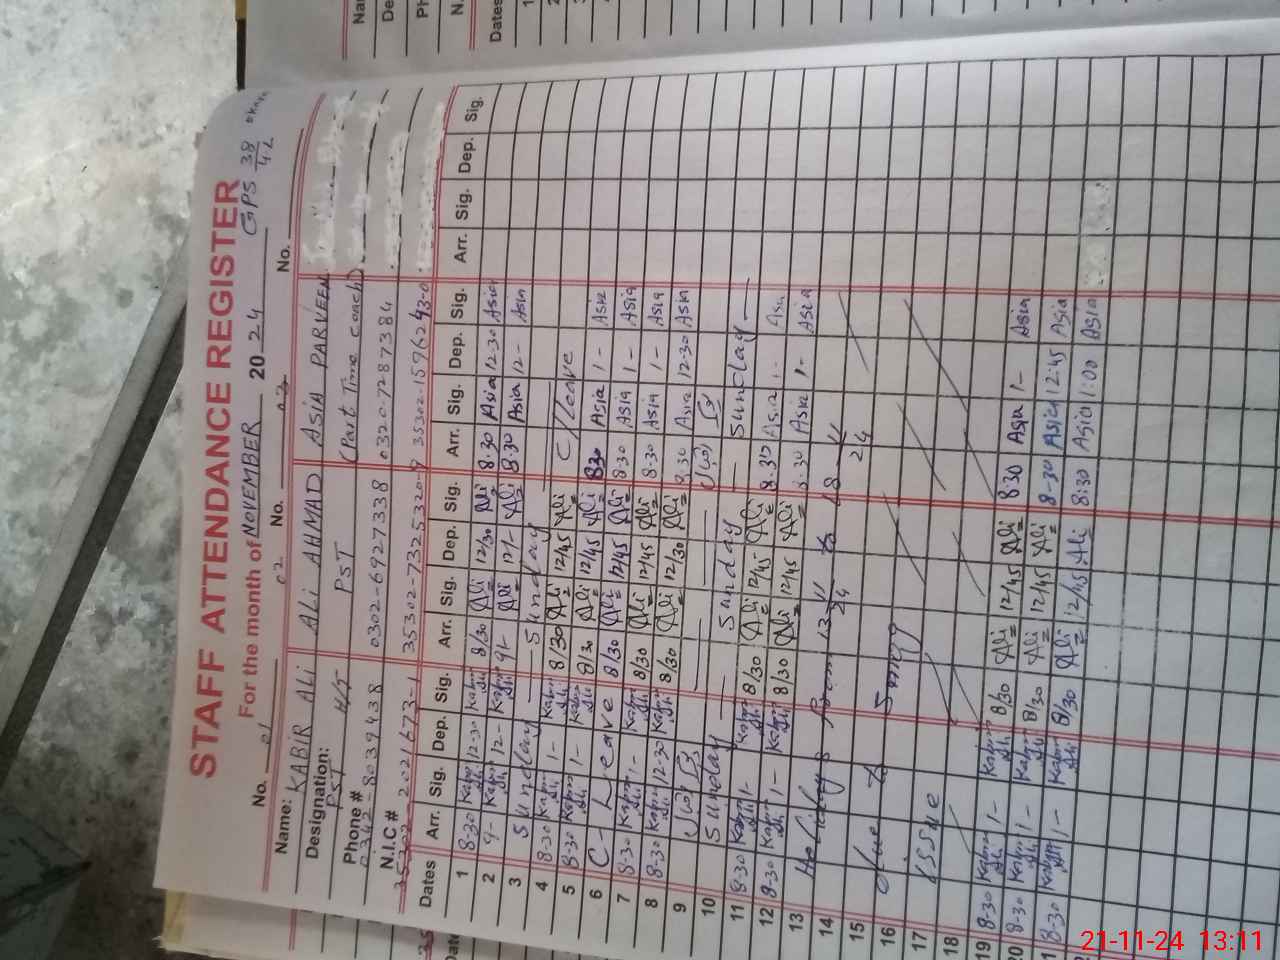 STAFF ATTENDANCE REGISTER
For the month of NOVEMBER 2024 GPS 38/4L
No. 01 No. 02 No. 03 No.
Name: KABIR ALI ALI AHMAD ASIA PARVEEN
Designation: PST H/T PST (Part Time coach)
Phone # 0342-8039438 0302-6927338 0320-7287384
N.I.C # 35302-2021673-1 35302-7325320-9 35302-1576243-0
Dates Arr. Sig. Dep. Sig. Arr. Sig. Dep. Sig. Arr. Sig. Dep. Sig. Arr. Sig. Dep. Sig.
1 8-30 Kabir Ali 12-30 Kabir Ali 8/30 Ali 12/30 Ali 8.30 Asia 12-30 Asia
2 9- Kabir Ali 12- Kabir Ali 9/- Ali 12/- Ali 8.30 Asia 12- Asia
3 Sunday Sunday
4 8-30 Kabir Ali 1- Kabir Ali 8/30 Ali 12/45 Ali C/leave
5 8-30 Kabir Ali 1- Kabir Ali 8/30 Ali 12/45 Ali 8.30 Asia 1- Asia
6 C-Leave 8/30 Ali 12/45 Ali 8.30 Asia 1- Asia
7 8-30 Kabir Ali 1- Kabir Ali 8/30 Ali 12/45 Ali 8.30 Asia 1- Asia
8 8-30 Kabir Ali 12-30 Kabir Ali 8/30 Ali 12/30 Ali 8.30 Asia 12.30 Asia
9
10 Sunday Sunday Sunday
11 8-30 Kabir Ali 1- Kabir Ali 8/30 Ali 12/45 Ali 8.30 Asia 1- Asia
12 8-30 Kabir Ali 1- Kabir Ali 8/30 Ali 12/45 Ali 8.30 Asia 1- Asia
13 Holidays From 13-11-24 to 18-11-24
14
15 due to Smog
16
17 issue
18
19 8-30 Kabir Ali 1- Kabir Ali 8/30 Ali 12/45 Ali 8.30 Asia 1- Asia
20 8-30 Kabir Ali 1- Kabir Ali 8/30 Ali 12/45 Ali 8-30 Asia 12:45 Asia
8-30 Kabir Ali 1- Kabir Ali 8/30 Ali 12/45 Ali 8:30 Asia 1:00 Asia
Dates
1
21-11-24 13:11